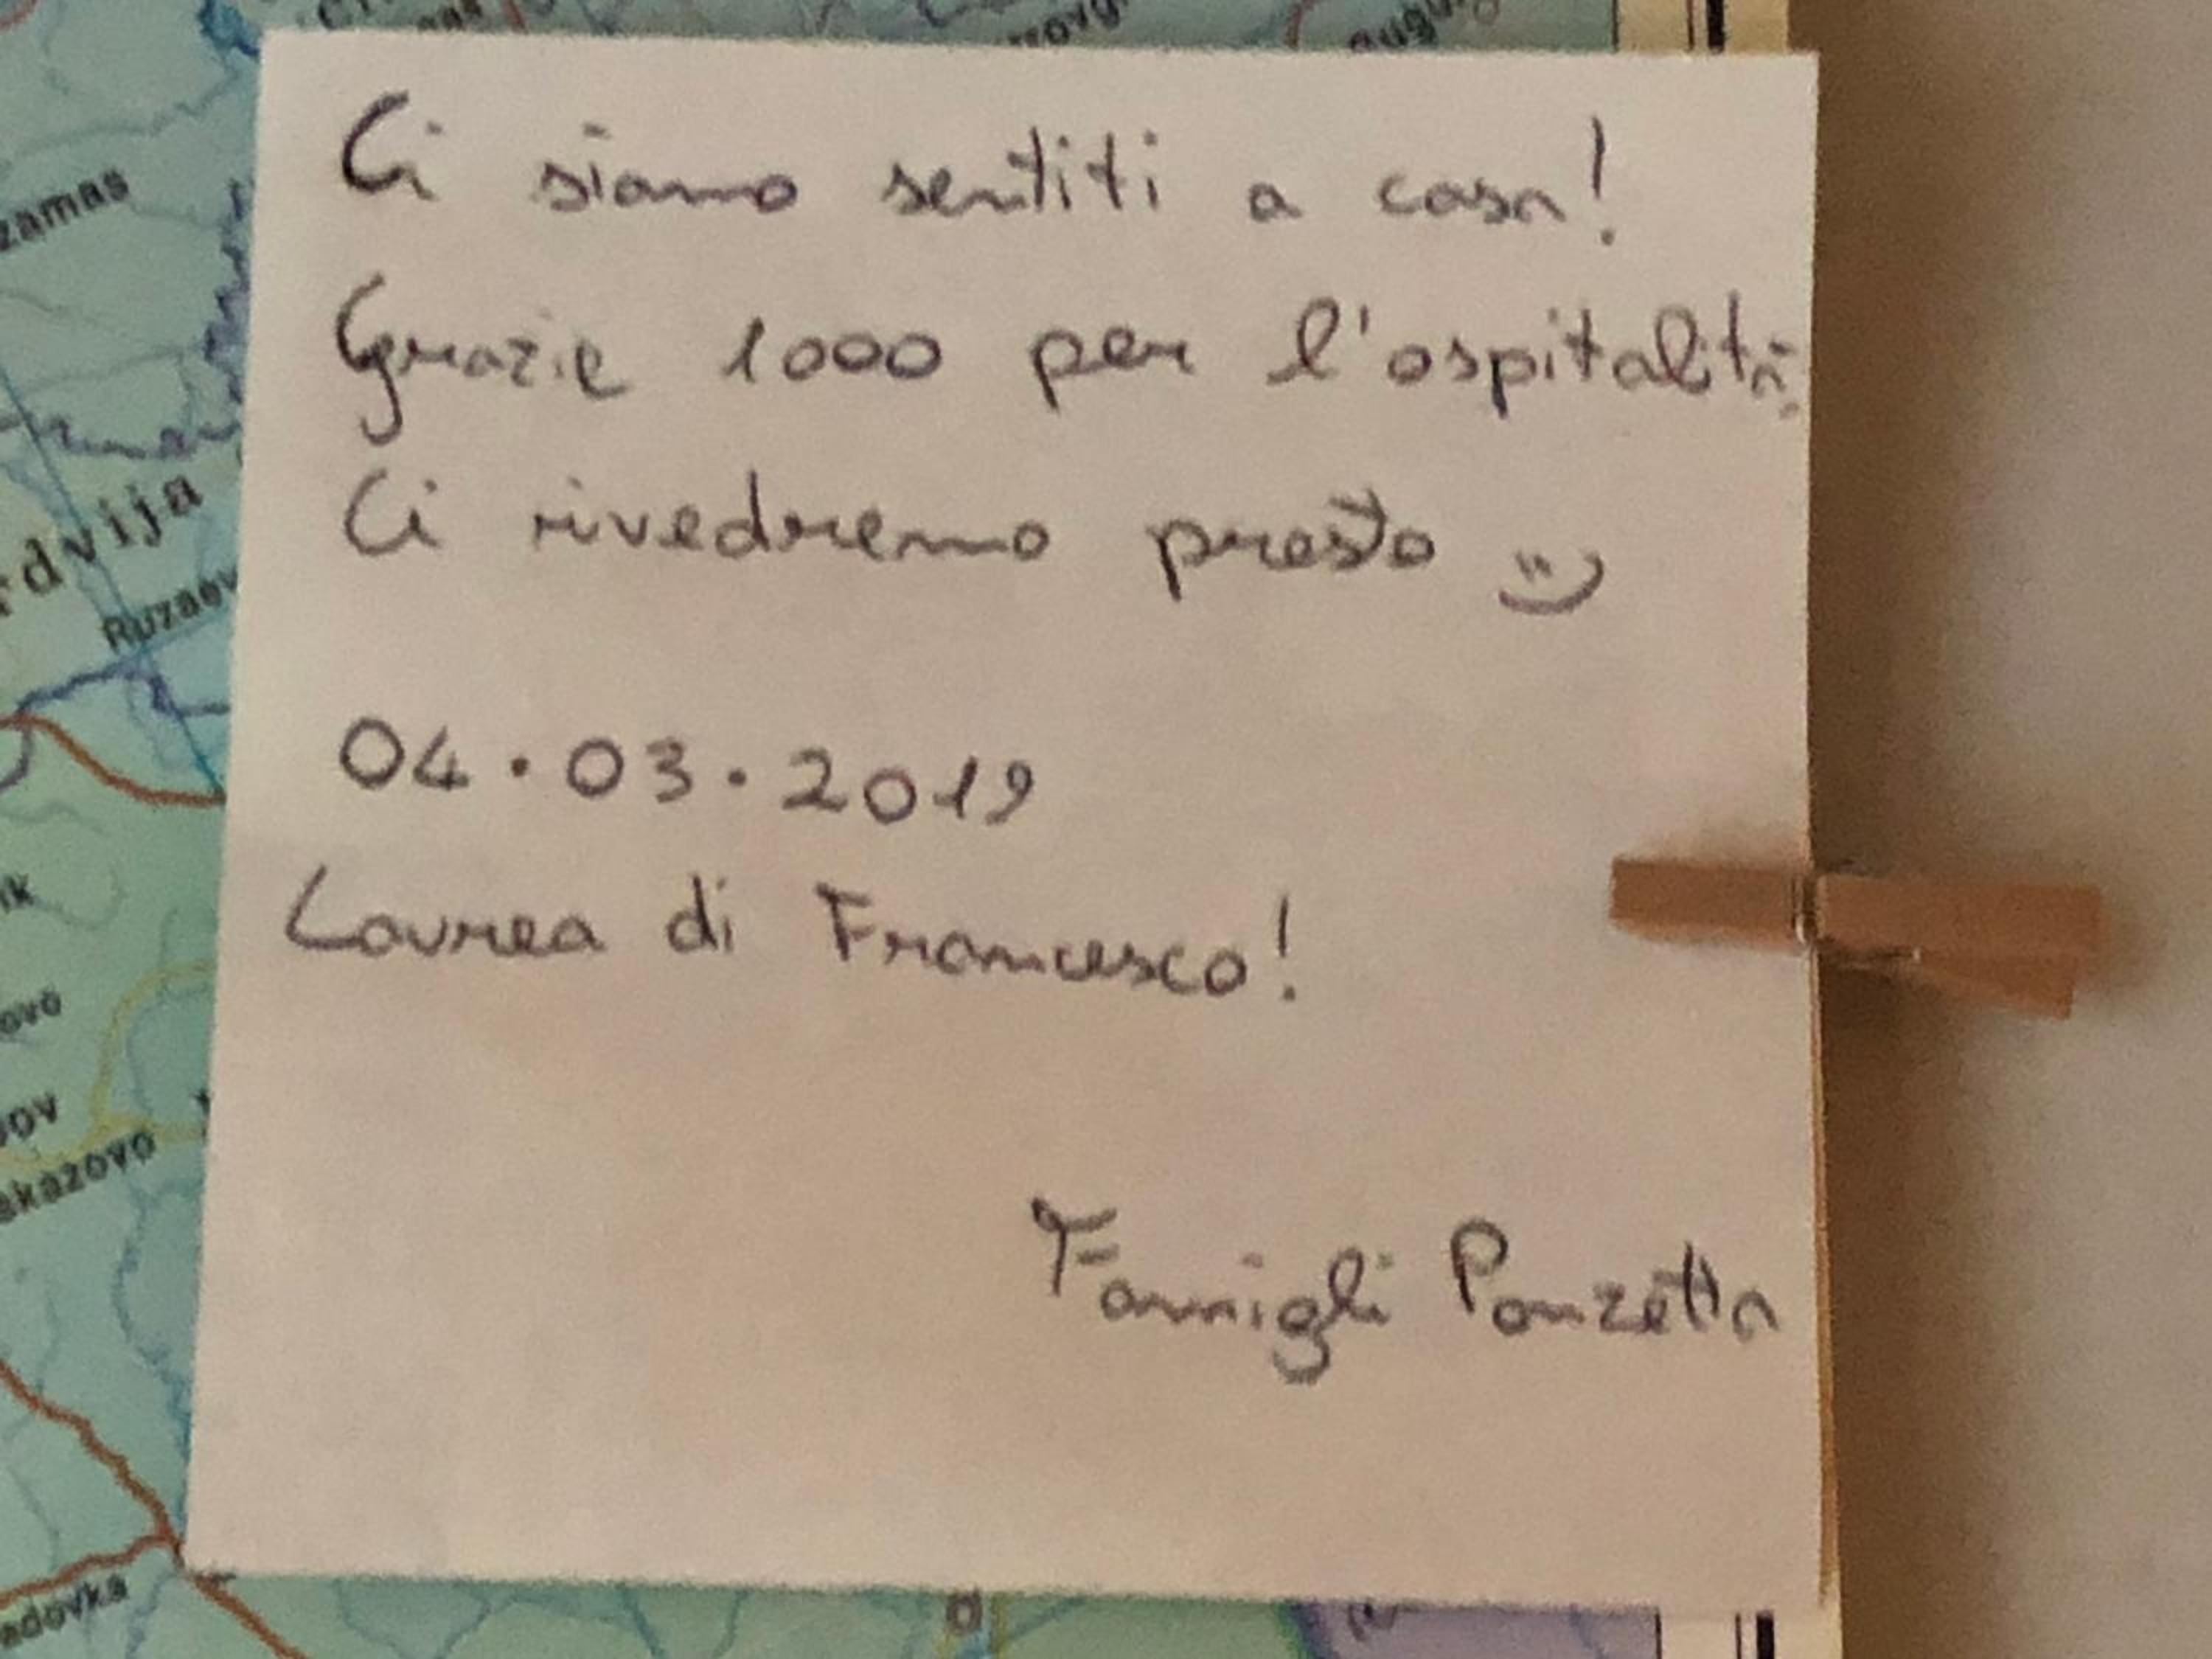 Ci siamo sentiti a casa!
Grazie 1000 per l'ospitalità.
Ci rivedremo presto :)
04.03.2019
Laurea di Francesco!
Famigli Panzetta
zamas
rdvija
Ruzaev
ik
ovo
akazovo
adovka